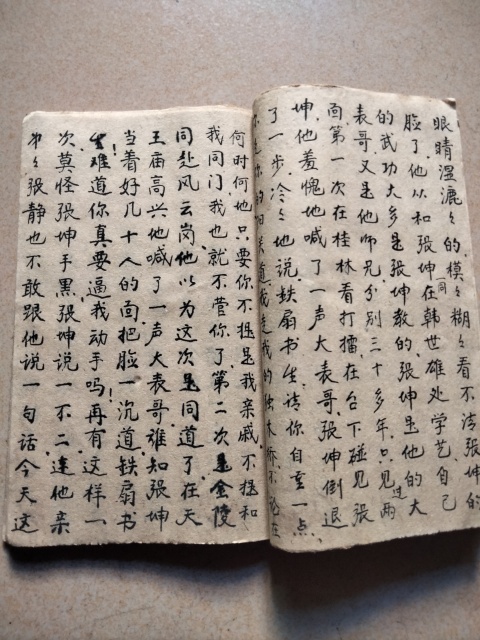 眼睛湿漉々的.模々糊々看不清张坤的
脸了.他从和张坤同在韩世雄处学艺.自己
的武功大多是张坤教的.张坤是他的大
表哥.又是他师兄.分别三十多年.只见过两
面.第一次在桂林看打擂.在台下碰见张
坤.他羞愧地喊了一声大表哥.张坤倒退
了一步.冷々地说.铁扇书生.请你自重一点.
你走你的阳关道.我走我的独木桥.不论在
何时何地.只要你不提是我亲戚.不提和
我同门.我也就不管你了.第二次是金陵
同赴风云岗.他以为这次是同道了.在天
王庙高兴地喊了一声大表哥.谁知张坤
当着好几十人的面.把脸一沉道.铁扇书
生!难道你真要逼我动手吗!再有这样一
次.莫怪张坤手黑.张坤说一不二.连他亲
弟々张静也不敢跟他说一句话.今天这